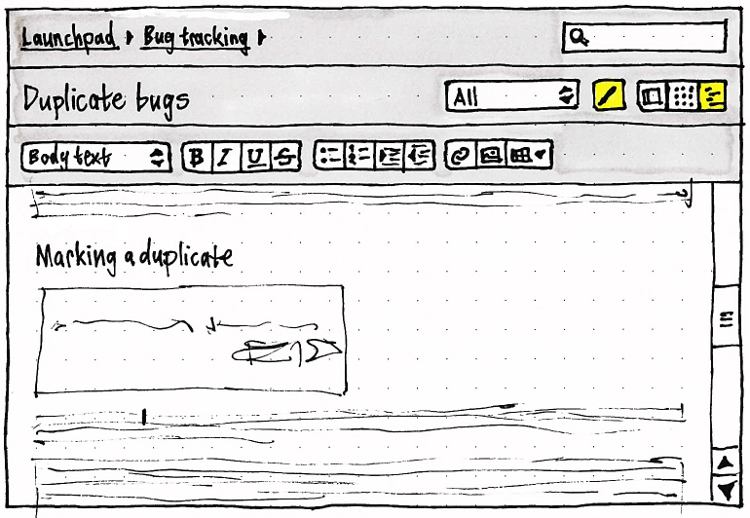 Launchpad Bug tracking
Duplicate bugs
All
Body text
B I U S
Marking a duplicate